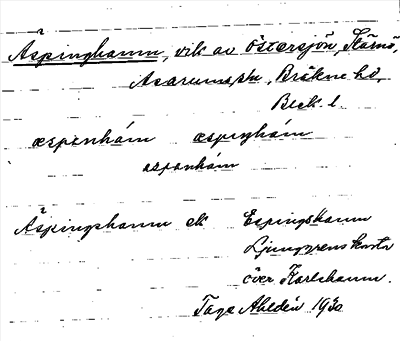 Äspinghamn, vik av Östersjön, Stärnö,
Asarums sn, Bräkne hd,
Blek. l.
æspenhám æspinhám
æspanhám
Äspingshamn ek Espingshamn
Ljunggrens karta
över Karlshamn.
Tage Ahldén 1930